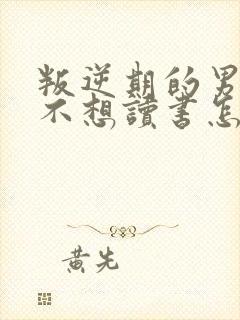 叛逆期的男
不想讀書怎
黃先